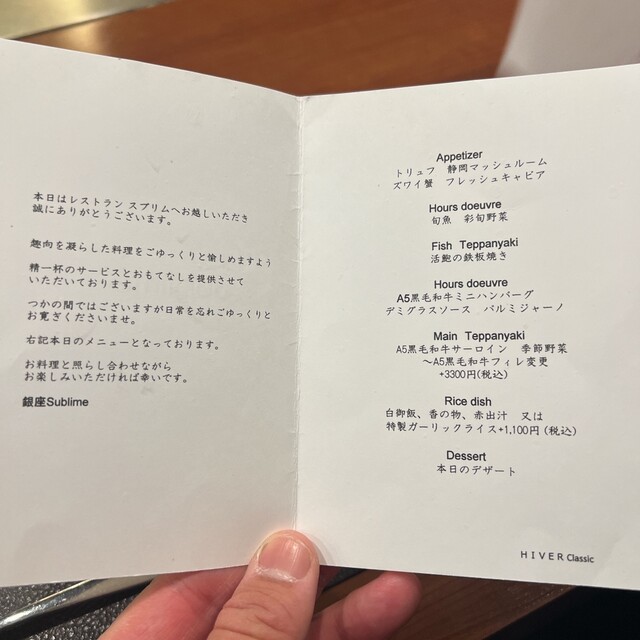 本日はレストラン スブリムへお越しいただき
誠にありがとうございます。
趣向を凝らした料理をごゆっくりと愉しめますよう
精一杯のサービスとおもてなしを提供させて
いただいております。
つかの間ではございますが日常を忘れごゆっくりと
お寛ぎくださいませ。
右記本日のメニューとなっております。
お料理と照らし合わせながら
お楽しみいただければ幸いです。
銀座Sublime
Appetizer
トリュフ 静岡マッシュルーム
ズワイ蟹 フレッシュキャビア
Hours doeuvre
旬魚 彩旬野菜
Fish Teppanyaki
活鮑の鉄板焼き
Hours doeuvre
A5黒毛和牛ミニハンバーグ
デミグラスソース パルミジャーノ
Main Teppanyaki
A5黒毛和牛サーロイン 季節野菜
～A5黒毛和牛フィレ変更
+3300円(税込)
Rice dish
白御飯、香の物、赤出汁 又は
特製ガーリックライス+1,100円(税込)
Dessert
本日のデザート
HIVER Classic